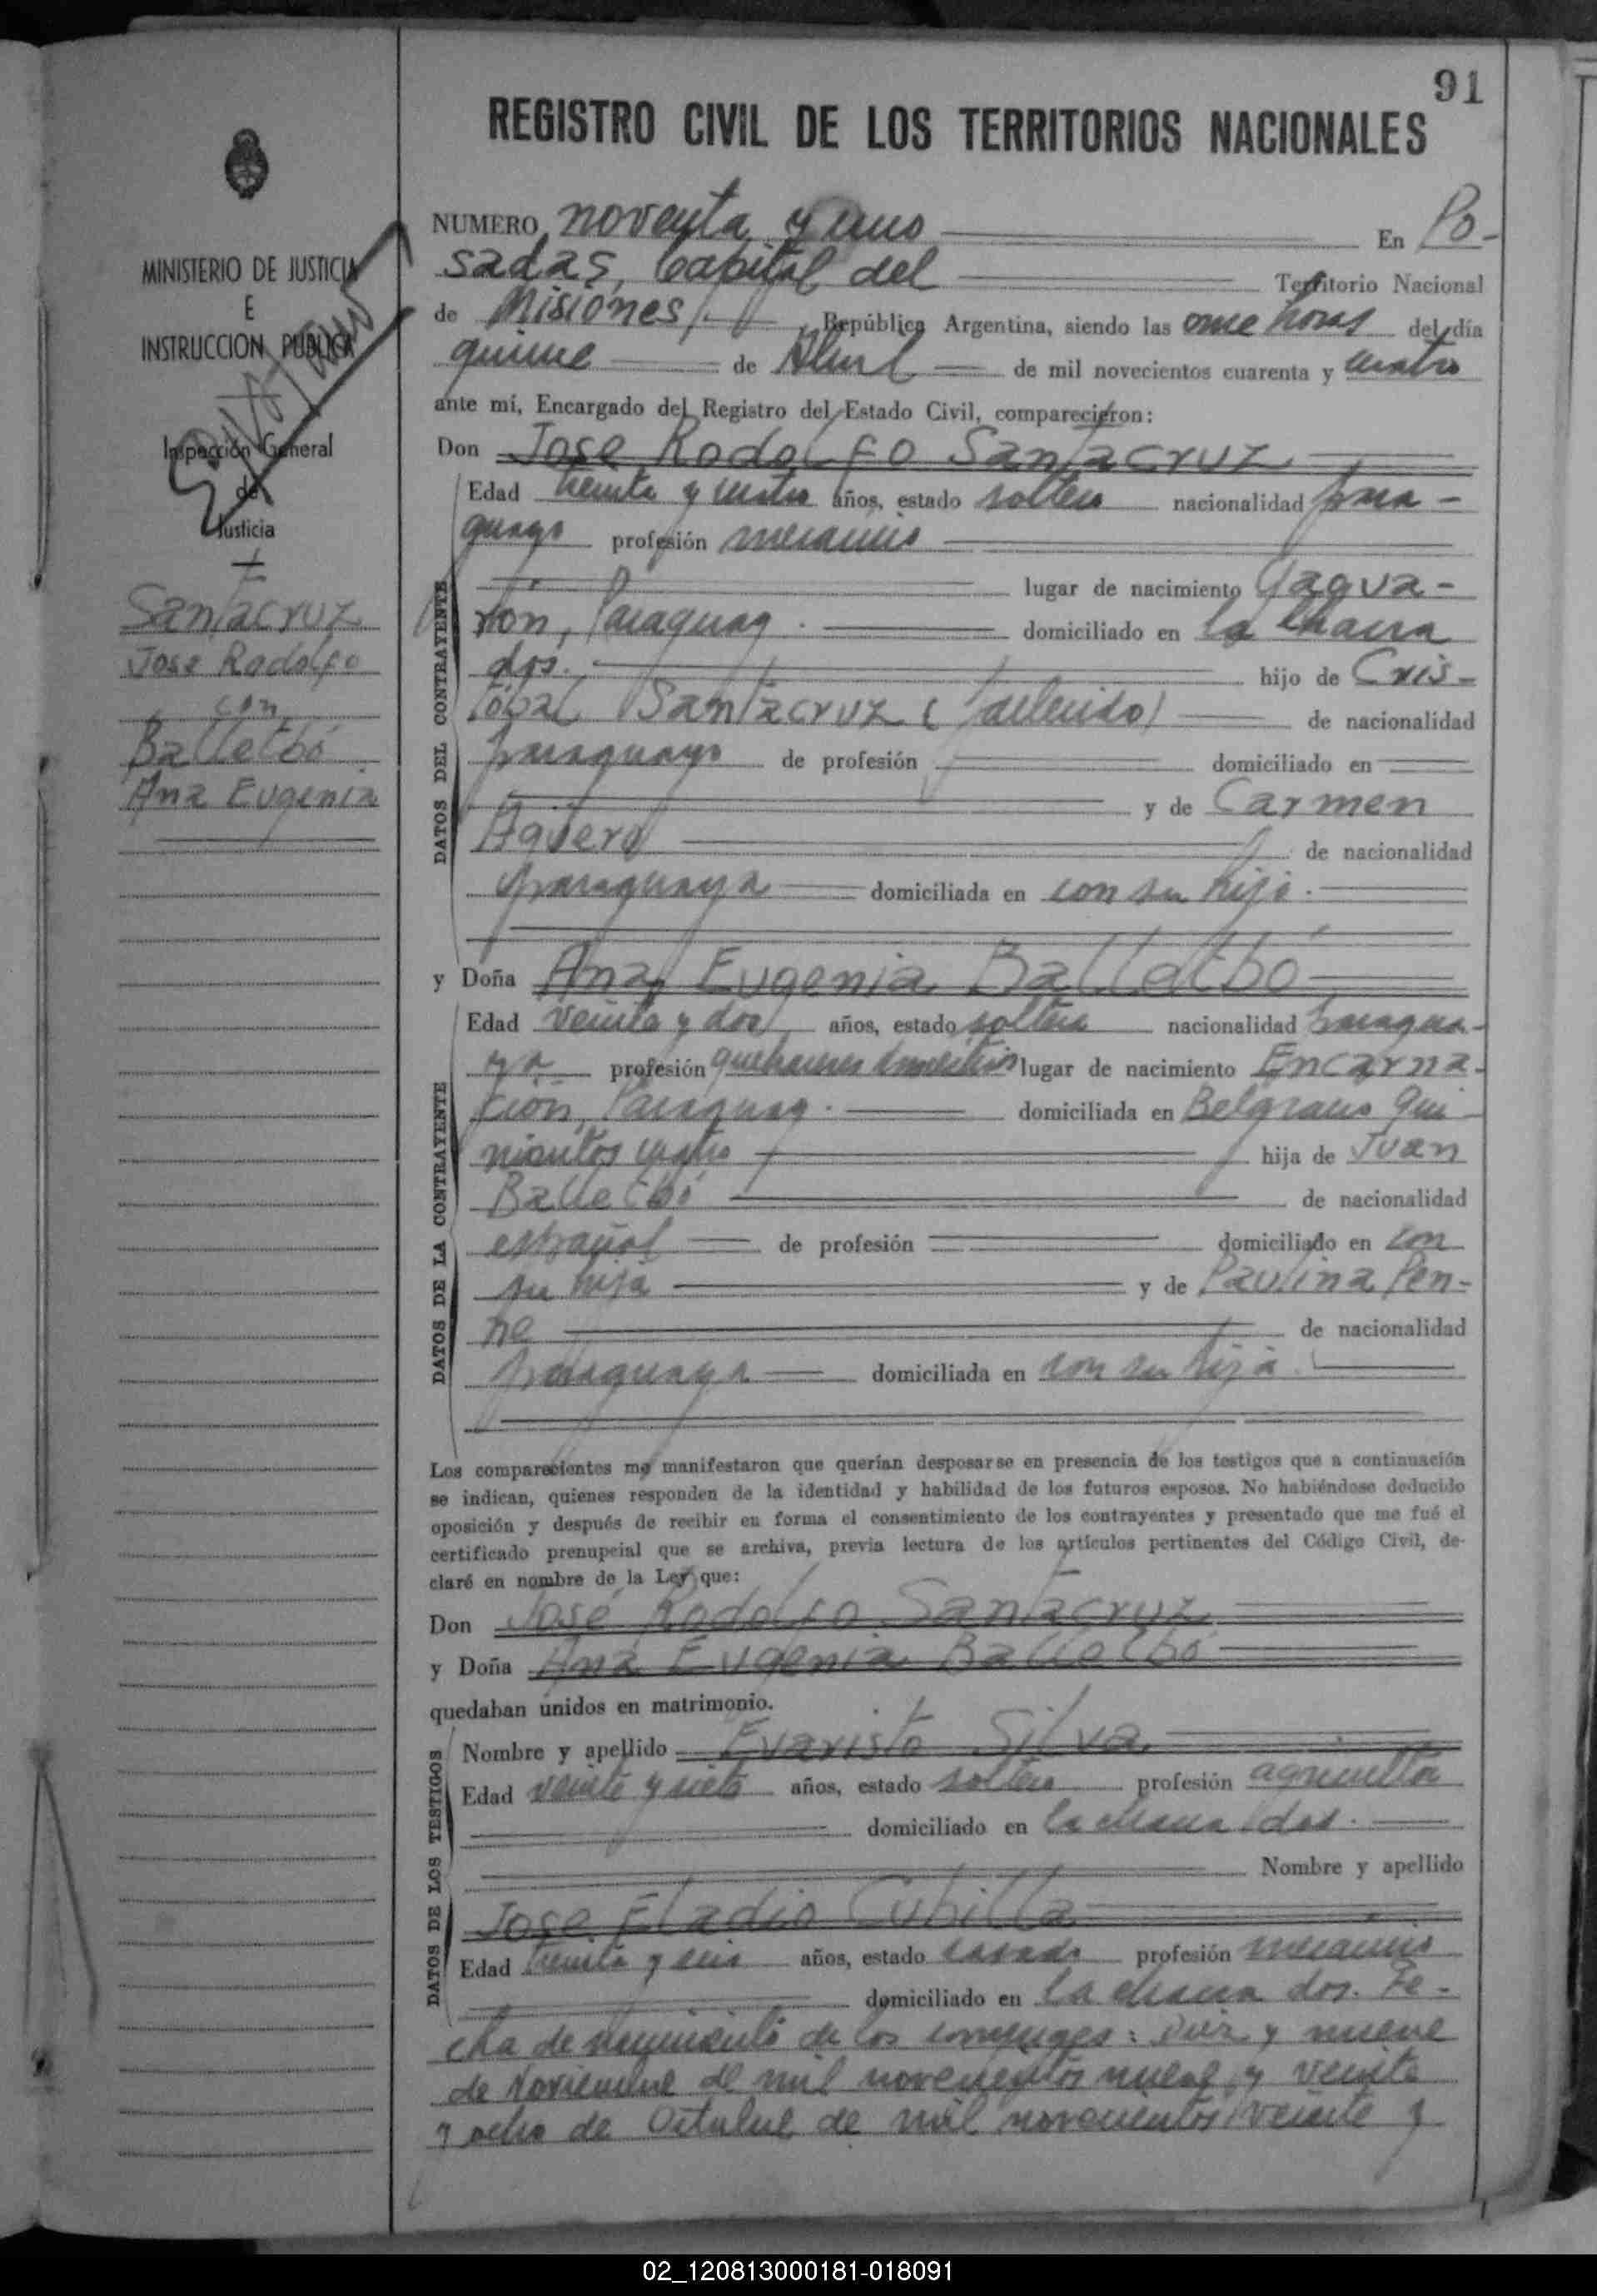 91
REGISTRO CIVIL DE LOS TERRITORIOS NACIONALES
MINISTERIO DE JUSTICIA
E
INSTRUCCION PUBLICA
Inspección General
de
Justicia
Santacruz
Jose Rodolfo
con
Balletbó
Ana Eugenia
NUMERO noventa y uno En Po-
sadas, Capital del Territorio Nacional
de Misiones, República Argentina, siendo las once horas del día
quince de Abril de mil novecientos cuarenta y cuatro
ante mí, Encargado del Registro del Estado Civil, comparecieron:
Don Jose Rodolfo Santacruz
DATOS DEL CONTRAYENTE
Edad treinta y cuatro años, estado soltero nacionalidad para-
guayo profesión mecánico
lugar de nacimiento Yagua-
rón, Paraguay. domiciliado en la chacra
dos. hijo de Cris-
tóbal Santacruz (fallecido) de nacionalidad
paraguayo de profesión domiciliado en
y de Carmen
Agüero de nacionalidad
paraguaya domiciliada en con su hijo.
y Doña Ana Eugenia Balletbó
DATOS DE LA CONTRAYENTE
Edad veinte y dos años, estado soltera nacionalidad paragua-
ya profesión quehaceres domésticos lugar de nacimiento Encarna-
ción, Paraguay. domiciliada en Belgrano qui
nientos cuatro hija de Juan
Balletbó de nacionalidad
español de profesión domiciliado en con
su hija y de Paulina Pen-
ne de nacionalidad
paraguaya domiciliada en con su hija.
Los comparecientes me manifestaron que querían desposarse en presencia de los testigos que a continuación
se indican, quienes responden de la identidad y habilidad de los futuros esposos. No habiéndose deducido
oposición y después de recibir en forma el consentimiento de los contrayentes y presentado que me fué el
certificado prenupcial que se archiva, previa lectura de los artículos pertinentes del Código Civil, de-
claré en nombre de la Ley que:
Don José Rodolfo Santacruz
y Doña Ana Eugenia Balletbó
quedaban unidos en matrimonio.
DATOS DE LOS TESTIGOS
Nombre y apellido Evaristo Silva
Edad veinte y siete años, estado soltero profesión agricultor
domiciliado en la chacra dos.
Nombre y apellido
Jose Eladio Cubilla
Edad treinta y seis años, estado casado profesión mecánico
domiciliado en la chacra dos. Fe-
cha de nacimiento de los conyuges: diez y nueve
de Noviembre de mil novecientos nueve y veinte
y ocho de Octubre de mil novecientos veinte y
02_120813000181-018091